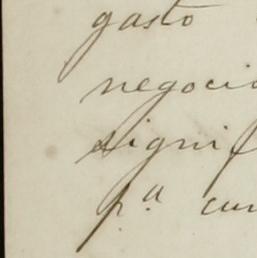 gasto
negocio
signif
pª cu